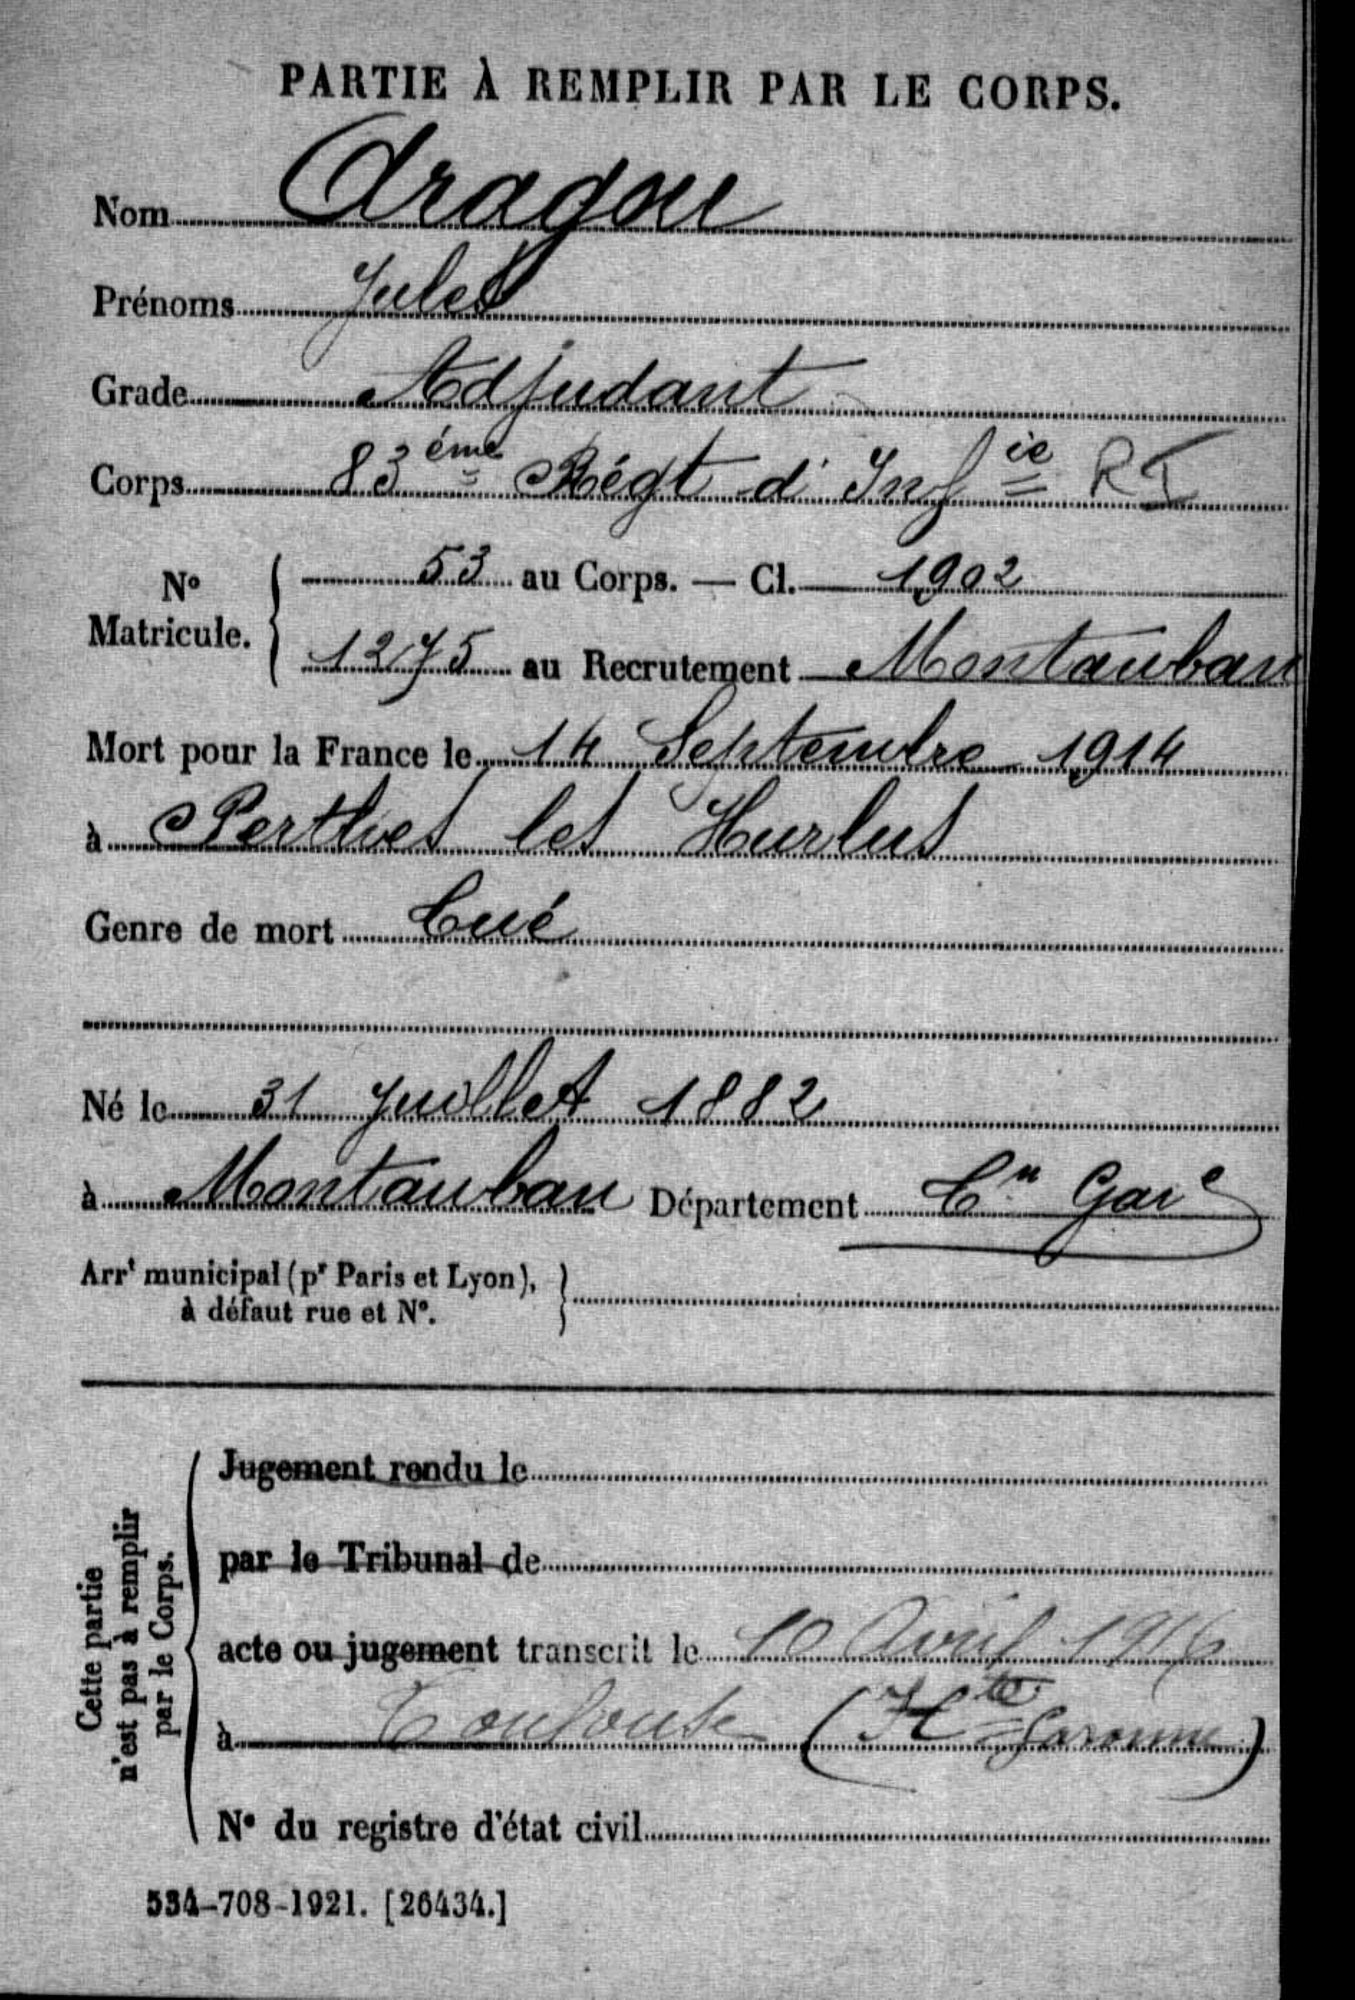 PARTIE À REMPLIR PAR LE CORPS.
Nom Aragon
Prénoms Jules
Grade Adjudant
Corps 83ème Régt d'Infie RI
N° Matricule. 53 au Corps. — Cl. 1902
1275 au Recrutement Montauban
Mort pour la France le 14 Septembre 1914
à Perthes les Hurlus
Genre de mort Tué
Né le 31 Juillet 1882
à Montauban Département Tn Gare
Arrt municipal (pr Paris et Lyon),
à défaut rue et N°.
Cette partie
n'est pas à remplir
par le Corps.
Jugement rendu le
par le Tribunal de
acte ou jugement transcrit le 10 Avril 1916
à Toulouse (Hte Garonne)
N° du registre d'état civil
534-708-1921. [26434.]